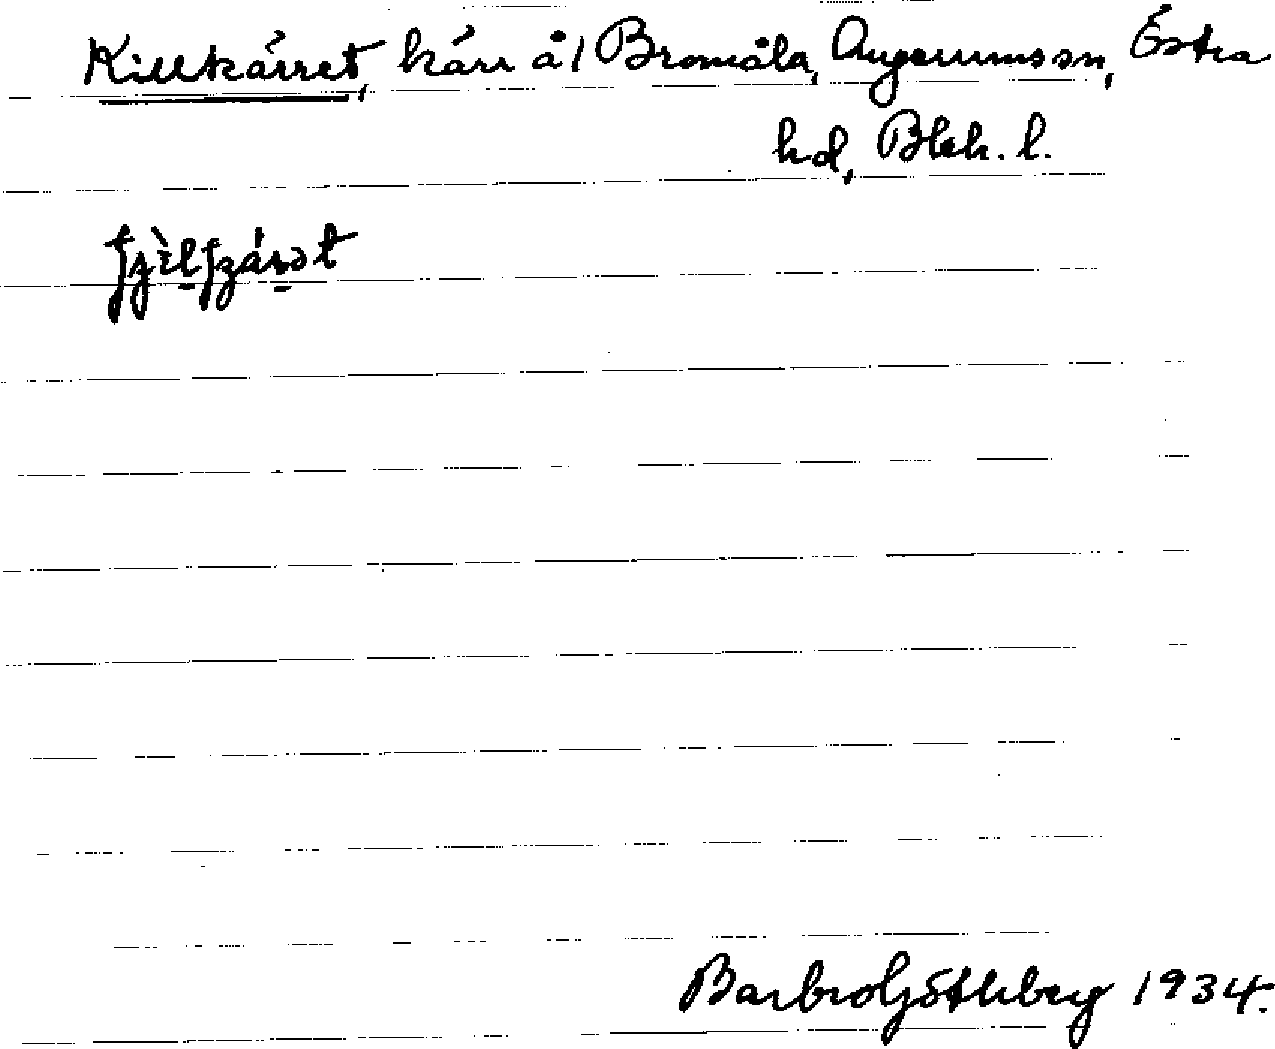 Killkärret, kärr å/ Bromåla, Augerums sn, Östra
hd, Blek. l.
Barbro Göthberg 1934.